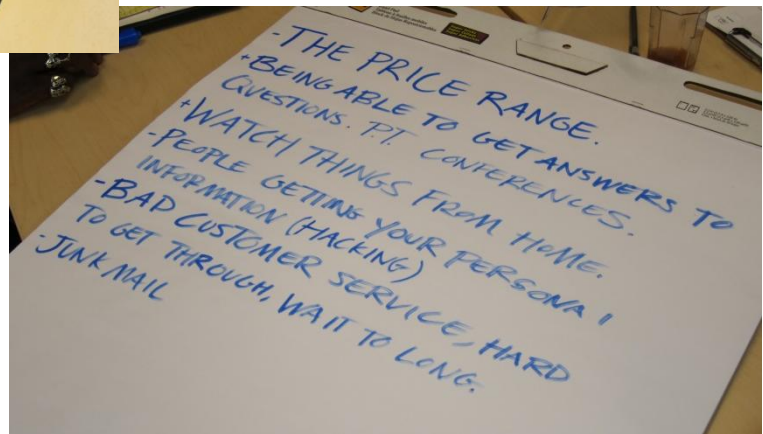 - THE PRICE RANGE.
+ BEING ABLE TO GET ANSWERS TO
QUESTIONS. P.T. CONFERENCES.
+ WATCH THINGS FROM HOME.
- PEOPLE GETTING YOUR PERSONAl
INFORMATION (HACKING)
- BAD CUSTOMER SERVICE, HARD
TO GET THROUGH, WAIT TO LONG.
- JUNK MAIL